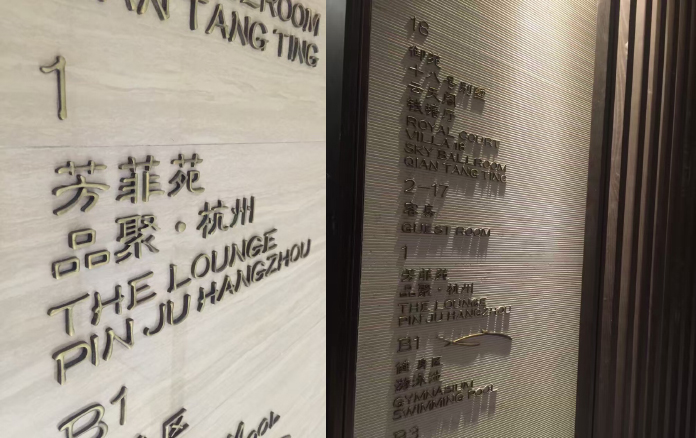 BALLROOM
QIAN TANG TING
1
芳菲苑
品聚·杭州
THE LOUNGE
PIN JU HANGZHOU
B1
18
御苑
十八号别院
ROYAL COURT
VILLA 18
SKY BALLROOM
QIAN TANG TING
2-17
客房
GUEST ROOM
1
芳菲苑
品聚·杭州
THE LOUNGE
PIN JU HANGZHOU
B1
游泳池
GYMNASIUM
SWIMMING POOL